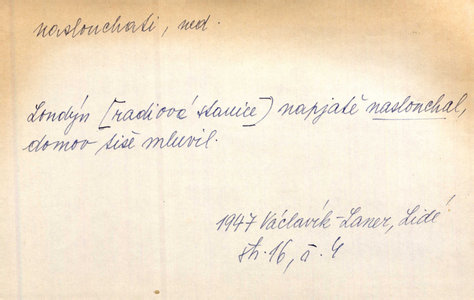 naslouchati, ned.
Londýn [radiová stanice] napjatě naslouchal,
domov tiše mluvil.
1947 Václavík-Laner, Lidé
str. 16, ř. 4